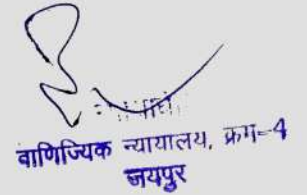 वाणिज्यिक न्यायालय, क्रम-4
जयपुर